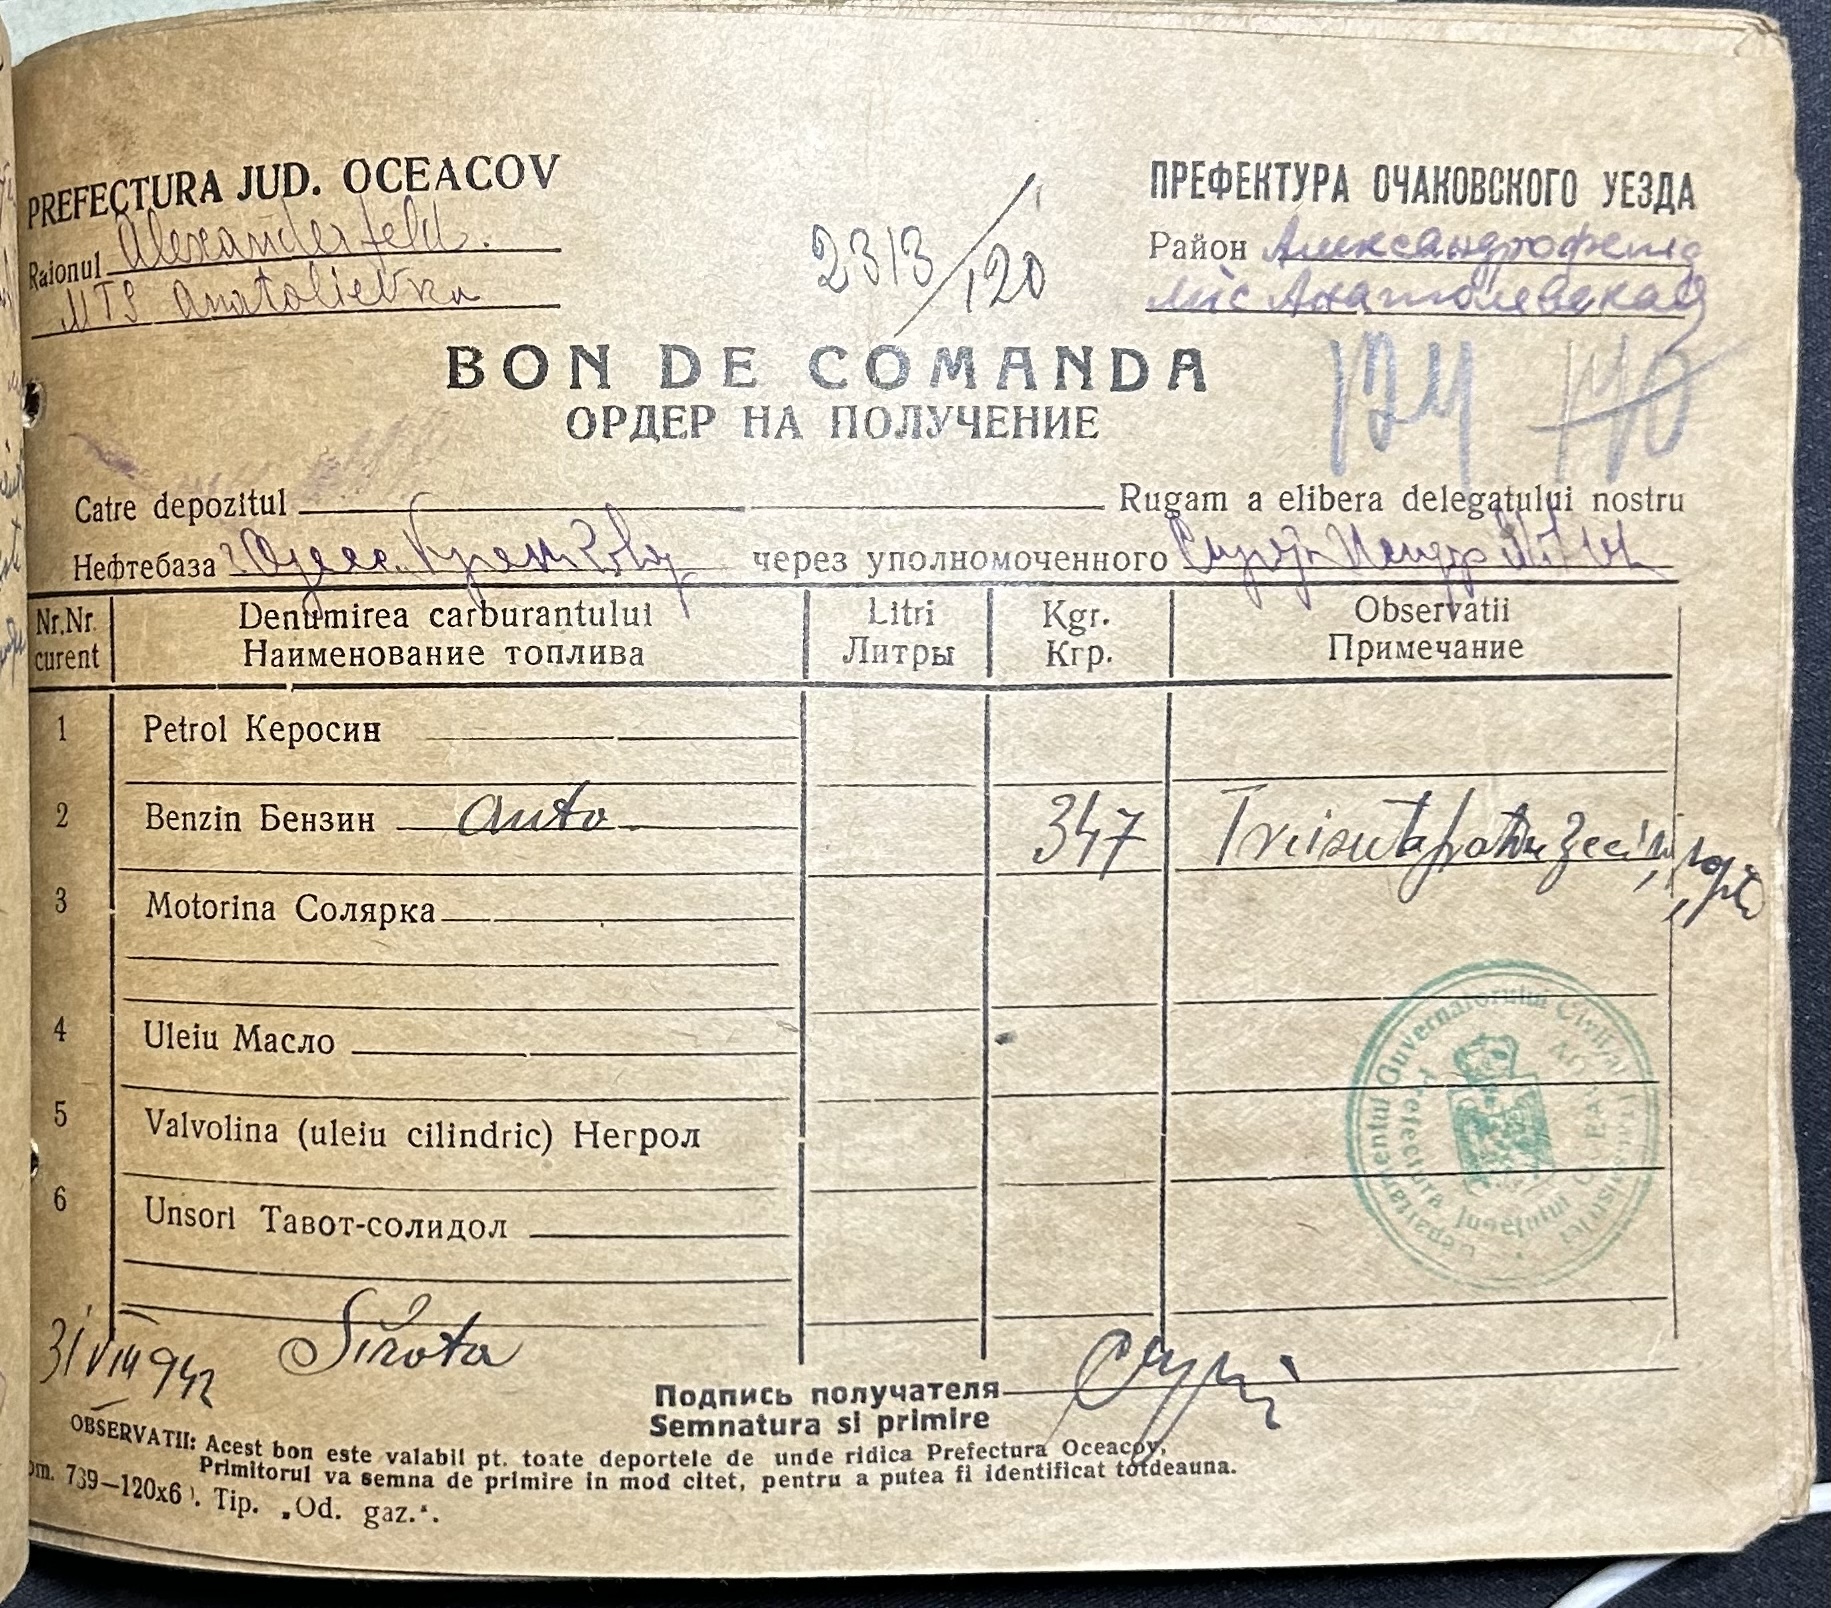 PREFECTURA JUD. OCEACOV
Raionul Alexanderfeld.
MTS Anatolievka
2313/120
ПРЕФЕКТУРА ОЧАКОВСКОГО УЕЗДА
Район Александрофельд
мтс Анатолевская
BON DE COMANDA
ОРДЕР НА ПОЛУЧЕНИЕ
174 140
Catre depozitul Rugam a elibera delegatului nostru
Нефтебаза через уполномоченного
Nr.Nr. curent
Denumirea carburantului
Наименование топлива
Litri
Литры
Kgr.
Кгр.
Observatii
Примечание
1 Petrol Керосин
2 Benzin Бензин auto 347 Treisutepatruzeci și șapte
3 Motorina Солярка
4 Uleiu Масло
5 Valvolina (uleiu cilindric) Негрол
6 Unsori Тавот-солидол
Departamentul Guvernatorului Civil al Transnistriei
Prefectura Județului OCEAKOV
31 VIII 942 Sirota
Подпись получателя
Semnatura si primire
OBSERVATII: Acest bon este valabil pt. toate deportele de unde ridica Prefectura Oceacov,
Primitorul va semna de primire in mod citet, pentru a putea fi identificat totdeauna.
om. 739—120x6 . Tip. „Od. gaz.“.